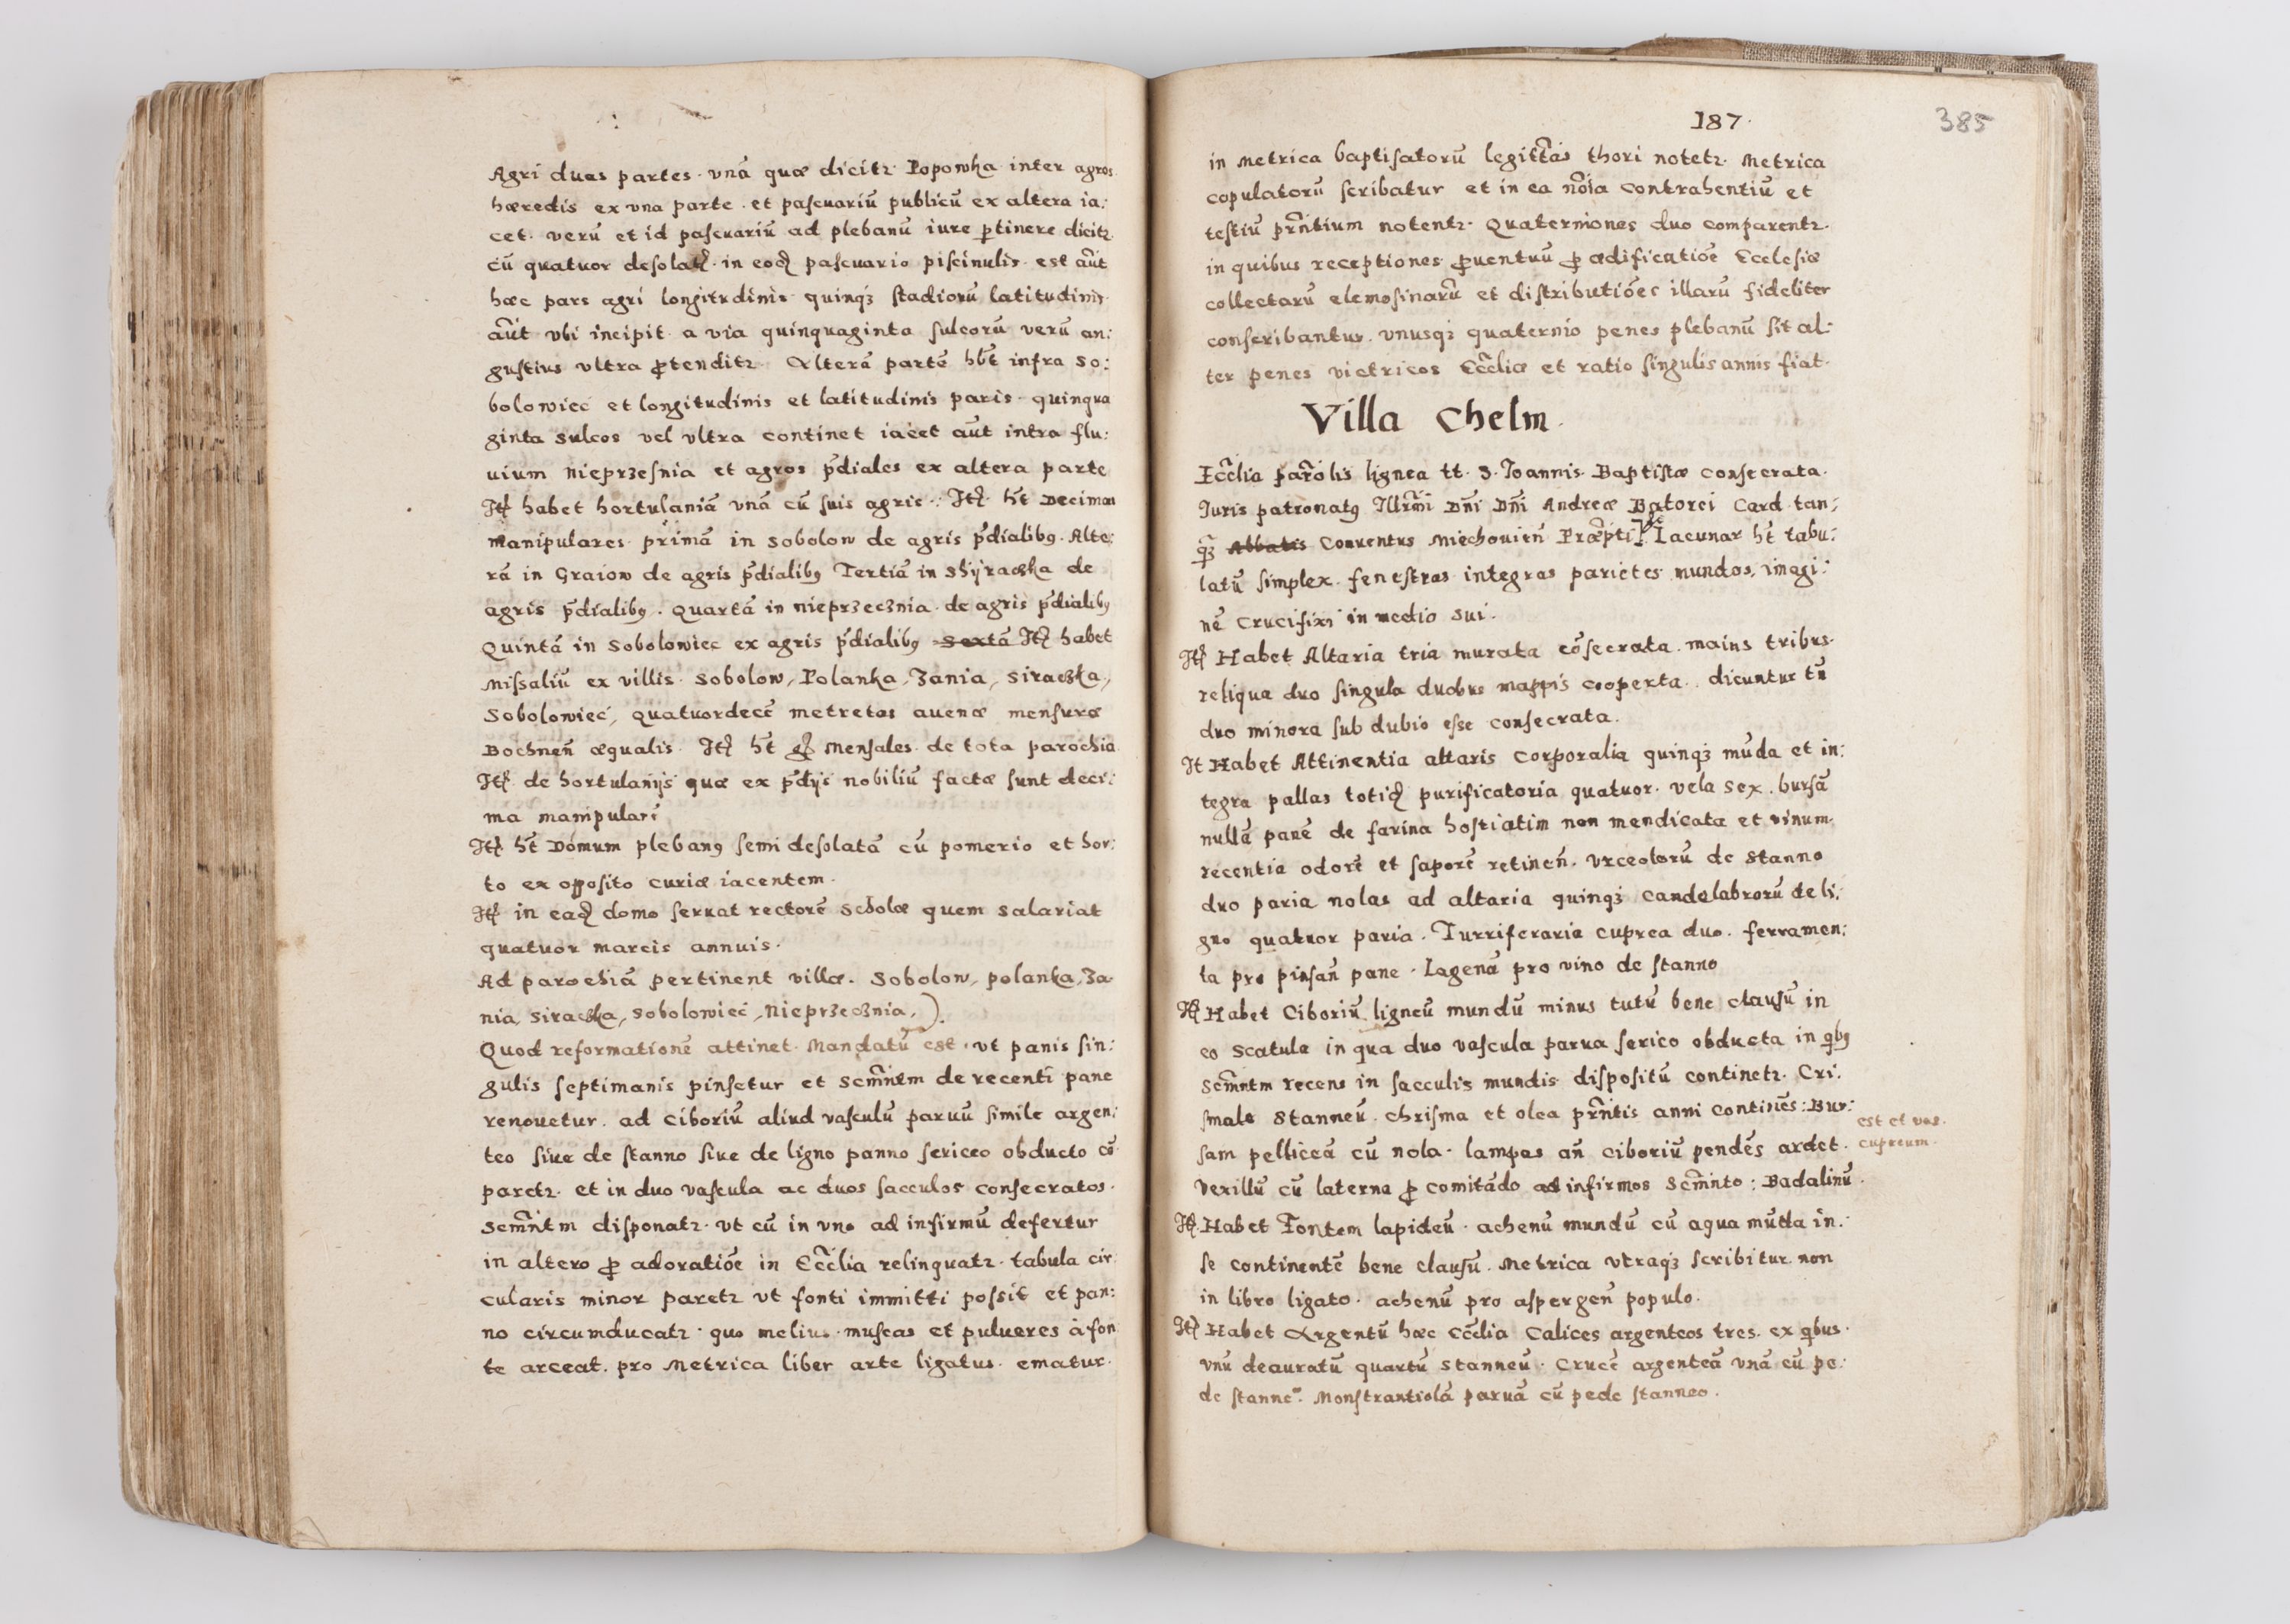 Agri duas partes. vnã quæ dicitꝛ Popowka inter agros
hæredis ex vna parte. et paſcuariũ publicũ ex altera ia:
cet. verũ et id paſcuariũ ad plebanũ iure ꝑtinere dicitꝛ
cũ quatuor deſolatꝭ. in eoꝗ paſcuario piſcinulis. est aũt
hæc pars agri longitudinis quinqꝫ ſtadiorũ latitudinis
aũt vbi incipit a via quinquaginta ſulcorũ verũ an:
guſtius vltra ꝓtenditꝛ Alterã partẽ hb̃t infra So:
bolowiec et longitudinis et latitudinis paris quinqua
ginta sulcos vel vltra continet iacet aũt intra flu:
uium Nieprzeſnia et agros p̃diales ex altera parte
Itꝭ habet hortulaniã vnã cũ ſuis agris. Itꝭ. h̃t Decimas
manipulares primã in Sobolow de agris p̃dialibꝰ. Alte:
rã in Graiow de agris p̃dialibꝰ Tertiã in Shijraczka de
agris p̃dialibꝰ. Quartã in Nieprzecznia de agris p̃dialibꝰ
Quintã in Sobolowiec ex agris p̃dialibꝰ Sextã Itꝭ habet
Miſſaliũ ex villis Sobolow, Polanka, Zania, Siraczka,
Sobolowiec, quatuordecẽ metretas auenæ menſuræ
Bochneñ æqualis. Itꝭ h̃t menſales de tota parochia
Itꝭ de hortulanijs quæ ex p̃dijs nobiliũ factæ ſunt deci:
ma manipulari
Itꝭ h̃t Domum plebanꝰ ſemideſolatã cũ pomerio et hor:
to ex oppoſito curiæ iacentem.
Itꝭ in eaꝗ domo ſeruat rectorẽ Scholæ quem salariat
quatuor marcis annuis.
Ad parochiã pertinent villæ. Sobolow, polanka, Za
nia, Siraczka, Sobolowiec, Nieprzecznia,).
Quod reformationẽ attinet. Mandatũ est. vt panis ſin:
gulis ſeptimanis pinſetur et Scm̃ntm de recenti pane
renouetur. ad Ciboriũ aliud vaſculũ paruũ ſimile argen:
teo ſiue de ſtanno ſiue de ligno panno ſericeo obducto cõ
paretꝛ. et in duo vaſcula ac duos ſacculos conſecratos.
Scm̃ntm diſponatꝛ. vt cũ in vno ad infirmũ defertur
in altero ꝓ adoratiõe in Eccl̃ia relinquatꝛ. tabula cir
cularis minor paretꝛ vt fonti immitti poſſit et pan:
no circumducatꝛ. quo melius muſcas et pulueres à fon
te arceat. pro Metrica liber arte ligatus ematur.
187.
385
in Metrica baptiſatorũ legittĩas thori notetꝛ. Metrica
copulatorũ ſcribatur et in ea nõia Contrahentiũ et
teſtiũ prñtium notentꝛ. Quaterniones duo comparentꝛ.
in quibus receptiones ꝓuentuũ ꝓ ædificatiõe Eccleſiæ
collectarũ elemoſinarũ et diſtributiões illarũ fideliter
conſcribantur. vnusqꝫ quaternio penes plebanũ ſit al:
ter penes victricos Eccl̃iæ et ratio ſingulis annis fiat.
Villa Chelm.
Eccl̃ia parõlis lignea tt. S. Ioannis Baptiſtæ Conſecrata.
Iuris patronatꝰ Illr̃mi Dñi Dñi Andreæ Batorei Card. tan:
qꝫ Abbatis Conuentus Miechouieñ Præpti. Lacunar h̃t tabu:
latũ ſimplex. feneſtras integras parietes mundos, imagi:
nẽ Crucifixi in medio sui.
Itꝭ Habet Altaria tria murata cõſecrata. maius tribus
reliqua duo ſingula duobus mappis cooperta. dicuntur tñ
duo minora ſub dubio eſſe conſecrata.
It Habet Attinentia altaris Corporalia quinqꝫ mũda et in:
tegra pallas totiꝗ purificatoria quatuor. vela sex. burſã
nullã panẽ de farina hoſtiatim non mendicata et vinum
recentia odorẽ et ſaporẽ retineñ. vrceolorũ de Stanno
duo paria nolas ad altaria quinqꝫ candelabrorũ de li:
gno quatuor paria. Turriferaria cuprea duo. ferramen:
ta pro pinſañ pane. Lagenã pro vino de ſtanno
Itꝭ Habet Ciboriũ ligneũ mundũ minus tutũ bene clauſũ in
eo Scatula in qua duo vaſcula parua ſerico obducta in qbꝰ
Scm̃ntm recens in ſacculis mundis diſpoſitũ continetꝛ. Cri:
ſmale Stanneũ. chriſma et olea prñtis anni continẽs: Bur:
est et vas
cupreum.
ſam pelliceã cũ nola. lampas añ ciboriũ pendẽs ardet.
Vexillũ cũ laterna ꝓ comitãdo ad infirmos Scm̃nto: Badalinũ.
Itꝭ. Habet Fontem lapideũ. achenũ mundũ cũ aqua mũda in:
ſe continentẽ bene clauſũ. Metrica vtraqꝫ ſcribitur non
in libro ligato. achenũ pro aſpergeñ populo.
Itꝭ Habet Argentũ hæc Eccl̃ia Calices argenteos tres. ex qbus.
vnũ deauratũ quartũ stanneũ. Crucẽ argenteã vnã cũ pe:
de ſtanneo. Monſtrantiolã paruã cũ pede ſtanneo.